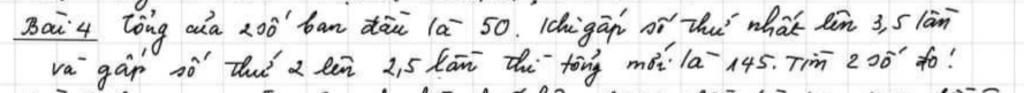 Bài 4 Tổng của 2 số ban đầu là 50. Khi gấp số thứ nhất lên 3,5 lần
và gấp số thứ 2 lên 2,5 lần thì tổng mới là 145. Tìm 2 số đó!